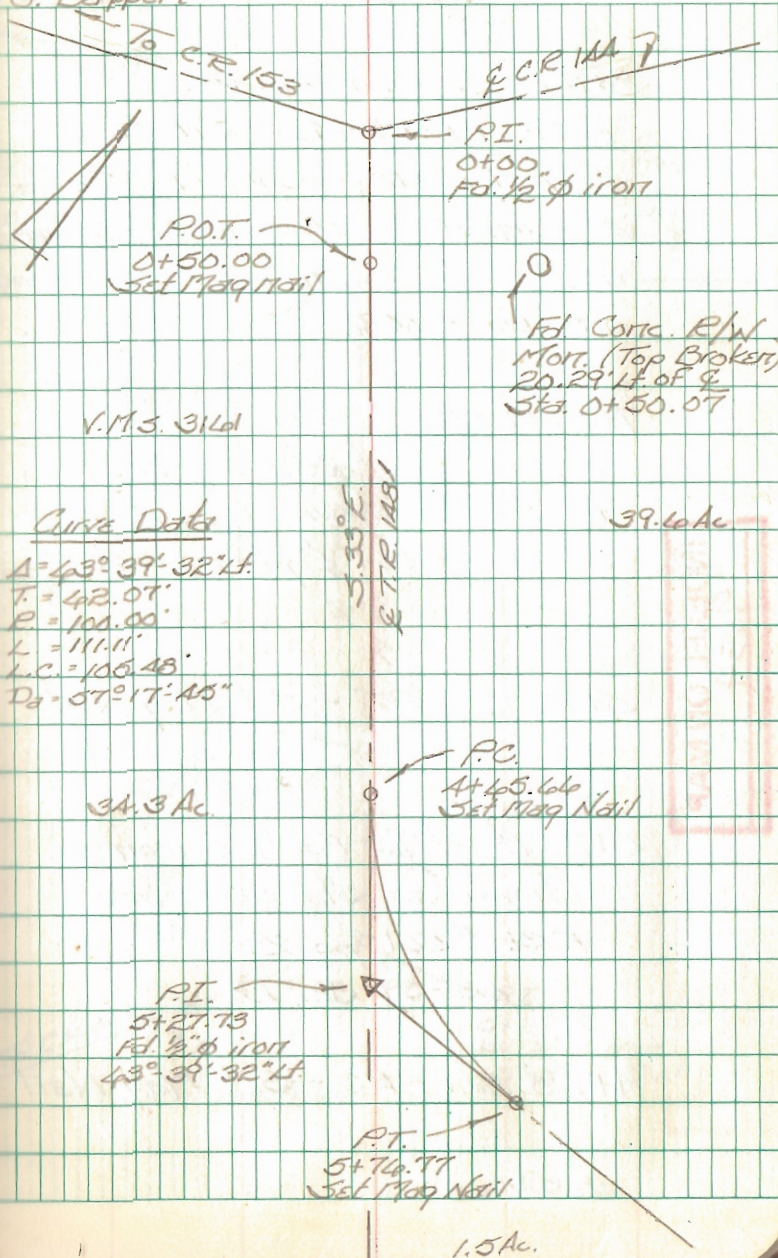 To C.R. 153
℄ C.R. 144
P.I.
0+00
Fd. 1/2" ϕ iron
P.O.T.
0+50.00
Set Mag Nail
Fd. Conc. R/W
Mon. (Top Broken)
20.29' Lt. of ℄
Sta. 0+50.07
V.M.S. 3161
S.33°E.
℄ T.R. 148
39.6 Ac.
Curve Data
Δ = 63°-39'-32" Lt.
T. = 62.07'
R. = 100.00'
L = 111.11'
L.C. = 105.48'
Da = 57°-17'-45"
P.C.
4+65.66
Set Mag Nail
34.3 Ac.
P.I.
5+27.73
Fd. 1/2" ϕ iron
63°-39'-32" Lt.
P.T.
5+76.77
Set Mag Nail
1.5 Ac.